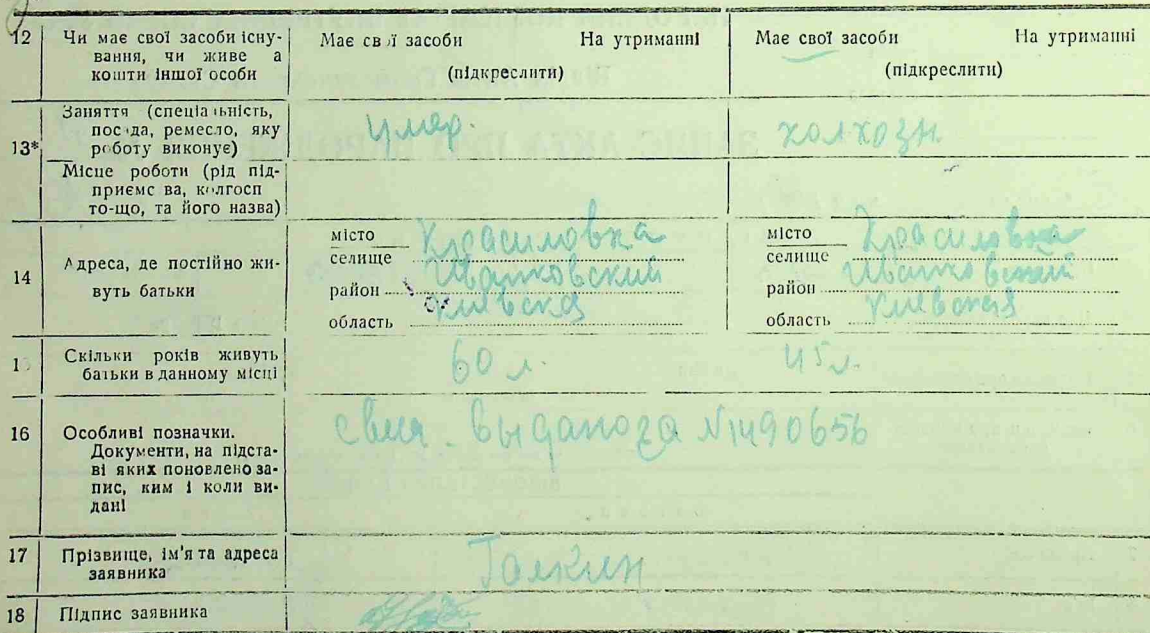 12 Чи має свої засоби існу-
вання, чи живе а
кошти іншої особи
Має св ї засоби На утриманні
(підкреслити)
Має свої засоби На утриманні
(підкреслити)
13* Заняття (спеціа ьність,
пос да, ремесло, яку
роботу виконує)
умер.
колхозн.
Місце роботи (рід під-
приємс ва, колгосп
то-що, та його назва)
14 Адреса, де постійно жи-
вуть батьки
місто Красиловка
селище Иванковский
район Киевская
область
місто Красиловка
селище Иванковский
район Киевская
область
1 Скільки років живуть
батьки в данному місці
60 л.
45 л.
16 Особливі позначки.
Документи, на підста-
ві яких поновлено за-
пис, ким і коли ви-
дані
выдано за №1490656
17 Прізвище, ім'я та адреса
заявника
Галкин
18 Підпис заявника